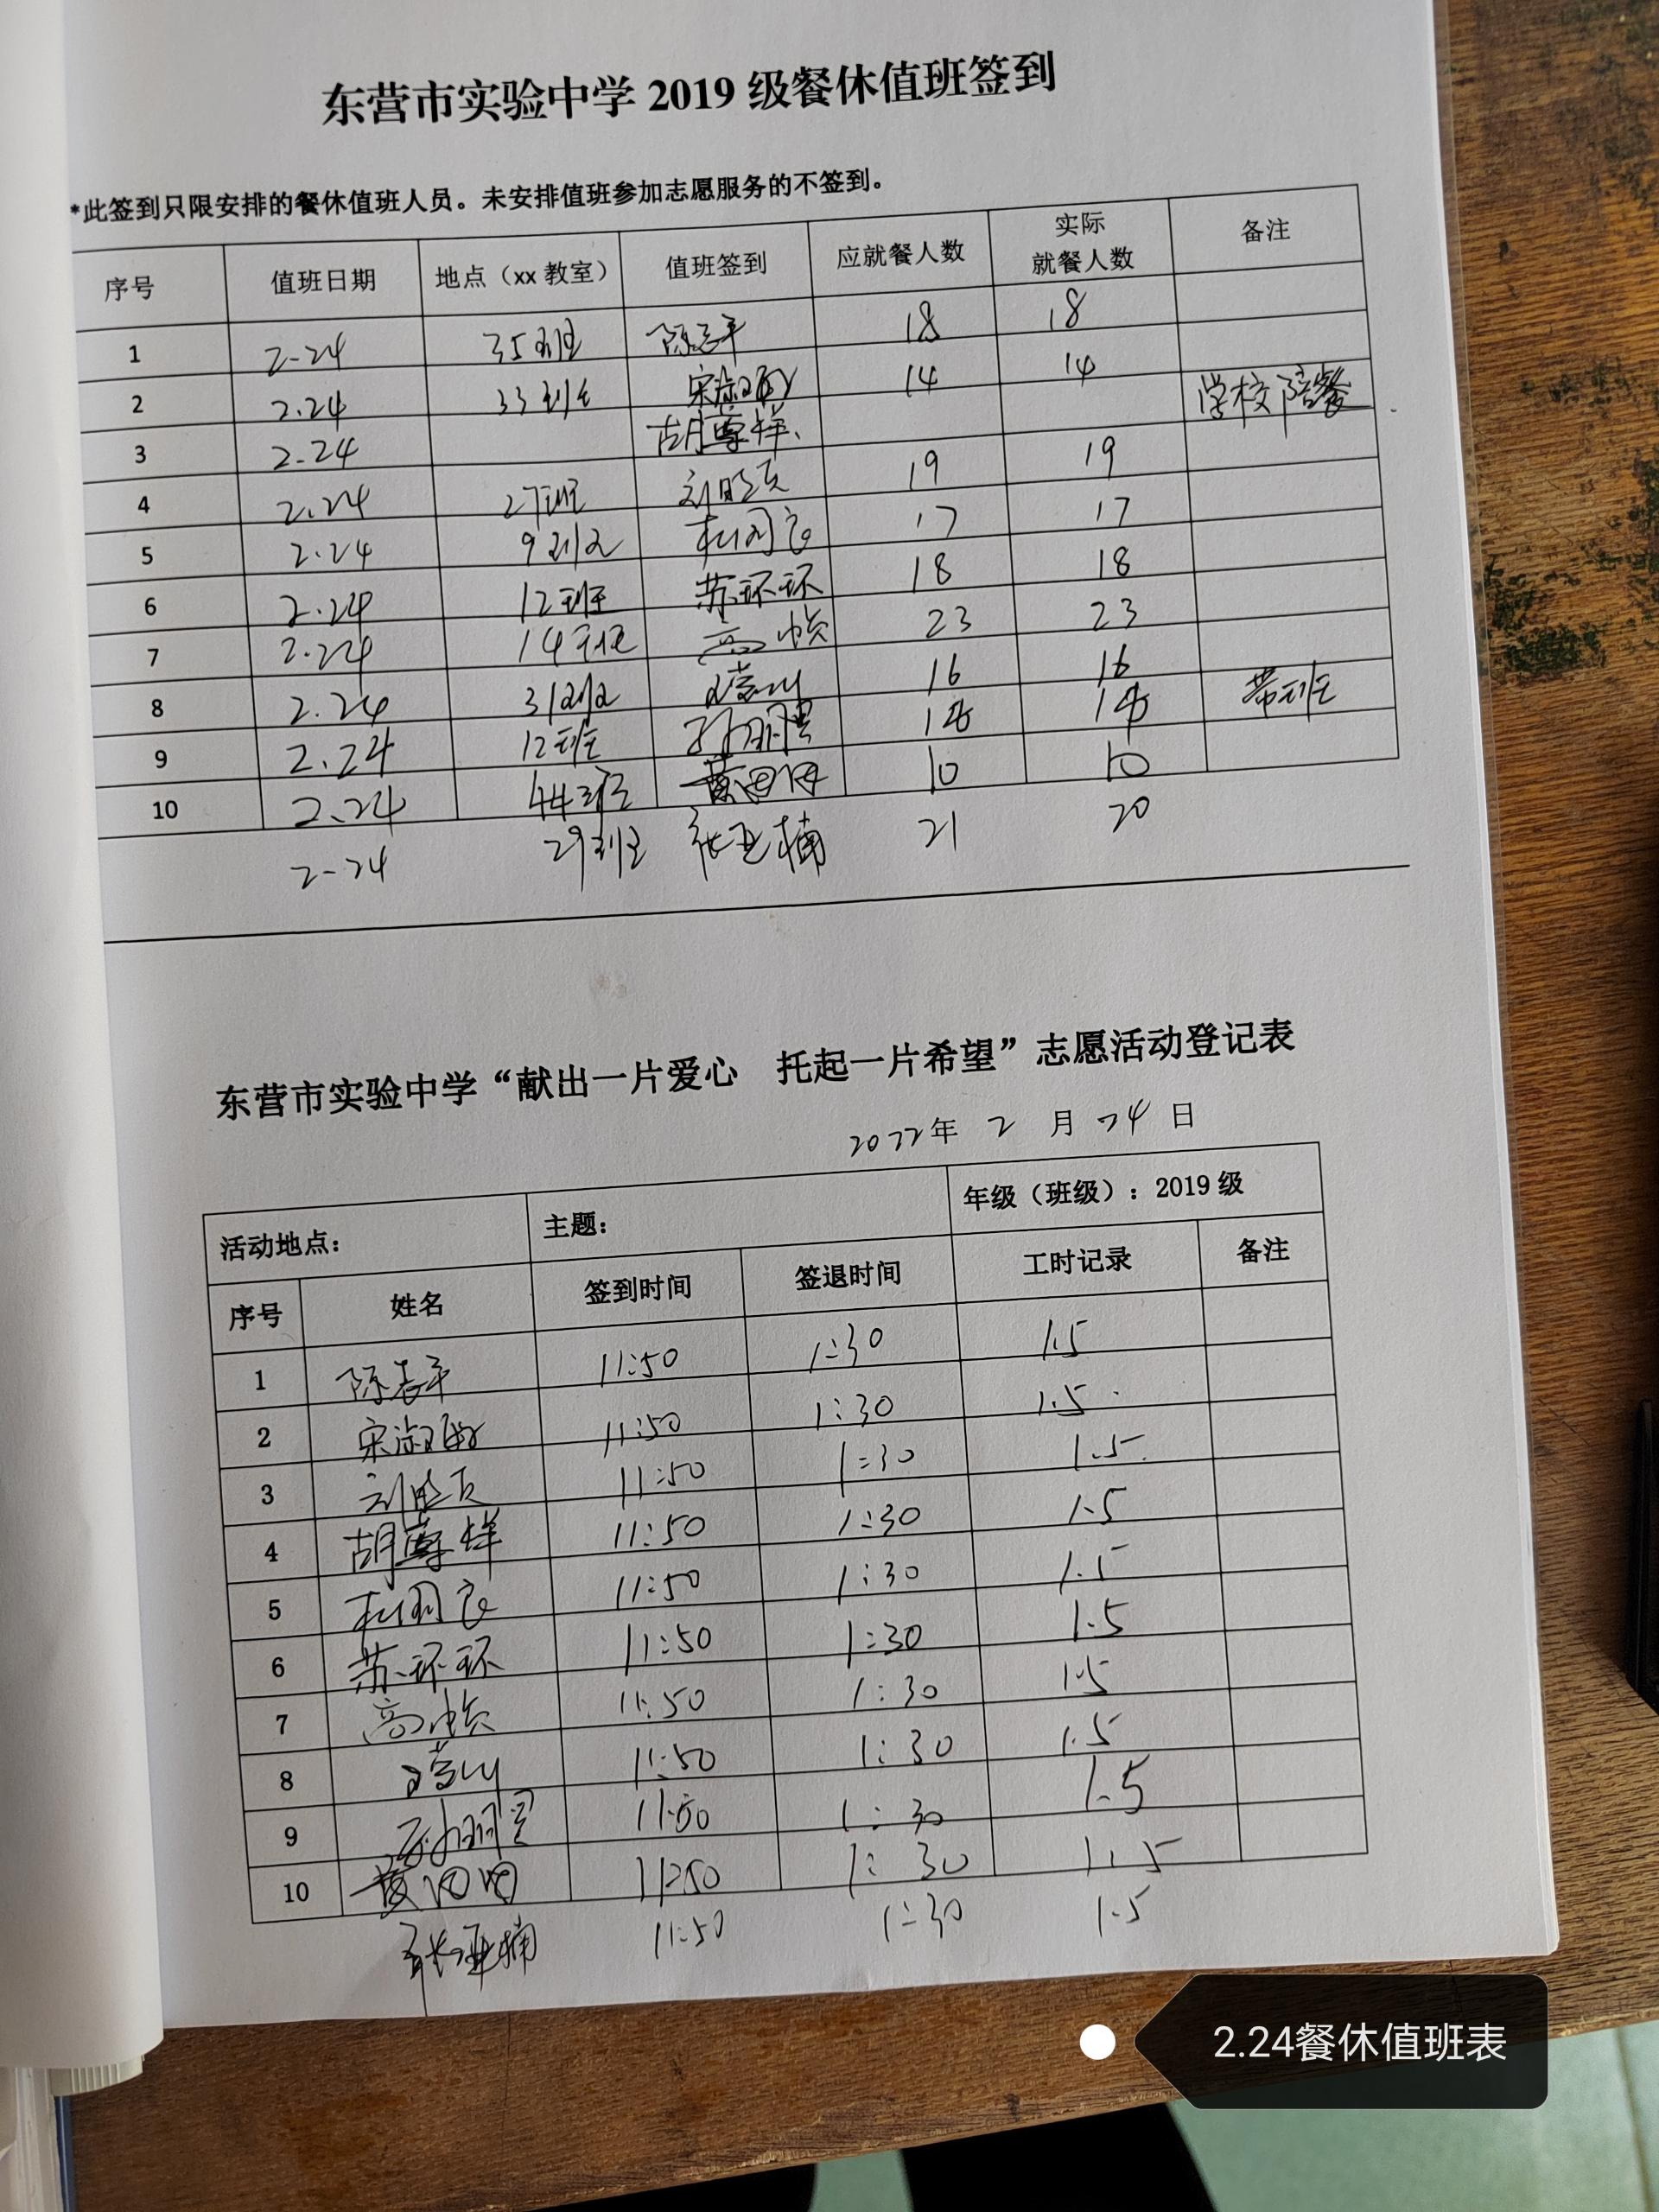 东营市实验中学 2019 级餐休值班签到
*此签到只限安排的餐休值班人员。未安排值班参加志愿服务的不签到。
序号 值班日期 地点（xx 教室） 值班签到 应就餐人数 实际就餐人数 备注
1 2-24 35班 陈志平 18 18
2 2.24 33班 宋淑敏 14 14
3 2.24 胡尊祥 学校陪餐
4 2.24 27班 19 19
5 2.24 9班 17 17
6 2.24 12班 苏环环 18 18
7 2.24 14班 高 23 23
8 2.24 31班 16 16
9 2.24 12班 孙 带班
10 2.24 44班 黄 10 10
2-24 29班 张亚楠 21 20
东营市实验中学“献出一片爱心 托起一片希望”志愿活动登记表
2022年 2 月 24 日
活动地点： 主题： 年级（班级）：2019 级
序号 姓名 签到时间 签退时间 工时记录 备注
1 陈志平 11:50 1:30 1.5
2 宋淑敏 11:50 1:30 1.5
3 11:50 1:30 1.5
4 胡尊祥 11:50 1:30 1.5
5 11:50 1:30 1.5
6 苏环环 11:50 1:30 1.5
7 高 11:50 1:30 1.5
8 11:50 1:30 1.5
9 孙 11:50 1:30 1.5
10 黄 11:50 1:30 1.5
张亚楠 11:50 1:30 1.5
2.24餐休值班表